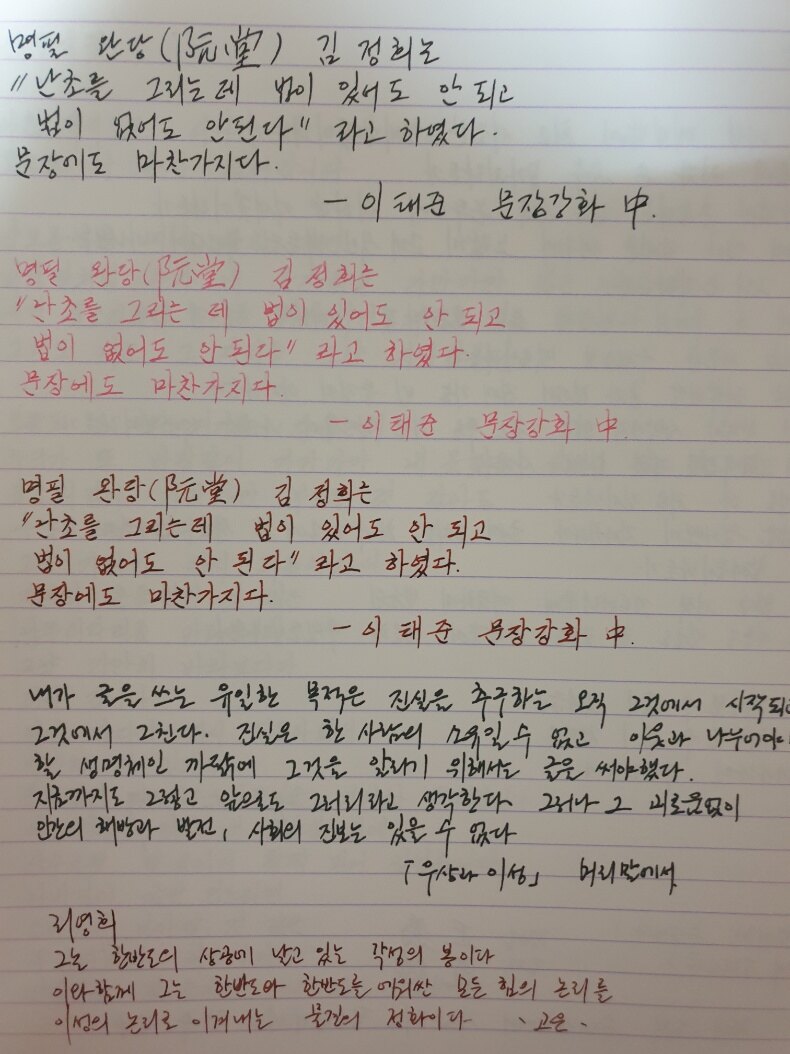 명필 완당(阮堂) 김정희는
"난초를 그리는데 법이 있어도 안 되고
법이 없어도 안된다" 라고 하였다.
문장에도 마찬가지다.
- 이태준 문장강화 中.
명필 완당(阮堂) 김정희는
"난초를 그리는 데 법이 있어도 안 되고
법이 없어도 안 된다" 라고 하였다.
문장에도 마찬가지다.
- 이태준 문장강화 中.
명필 완당(阮堂) 김정희는
"난초를 그리는데 법이 있어도 안 되고
법이 없어도 안 된다" 라고 하였다.
문장에도 마찬가지다.
- 이태준 문장강화 中.
내가 글을 쓰는 유일한 목적은 진실을 추구하는 오직 그것에서 시작되고
그것에서 그친다. 진실은 한 사람의 소유일 수 없고 이웃과 나누어야
할 생명체인 까닭에 그것을 알리기 위해서는 글을 써야했다.
지금까지도 그렇고 앞으로도 그러리라고 생각한다. 그러나 그 괴로움없이
인간의 해방과 발전, 사회의 진보는 있을 수 없다
「우상과 이성」 머리말에서
리영희
그는 한반도의 상공에 날고 있는 각성의 붕이다
이와함께 그는 한반도와 한반도를 에워싼 모든 힘의 논리를
이성의 논리로 이겨내는 물건의 정화이다 - 고은 -